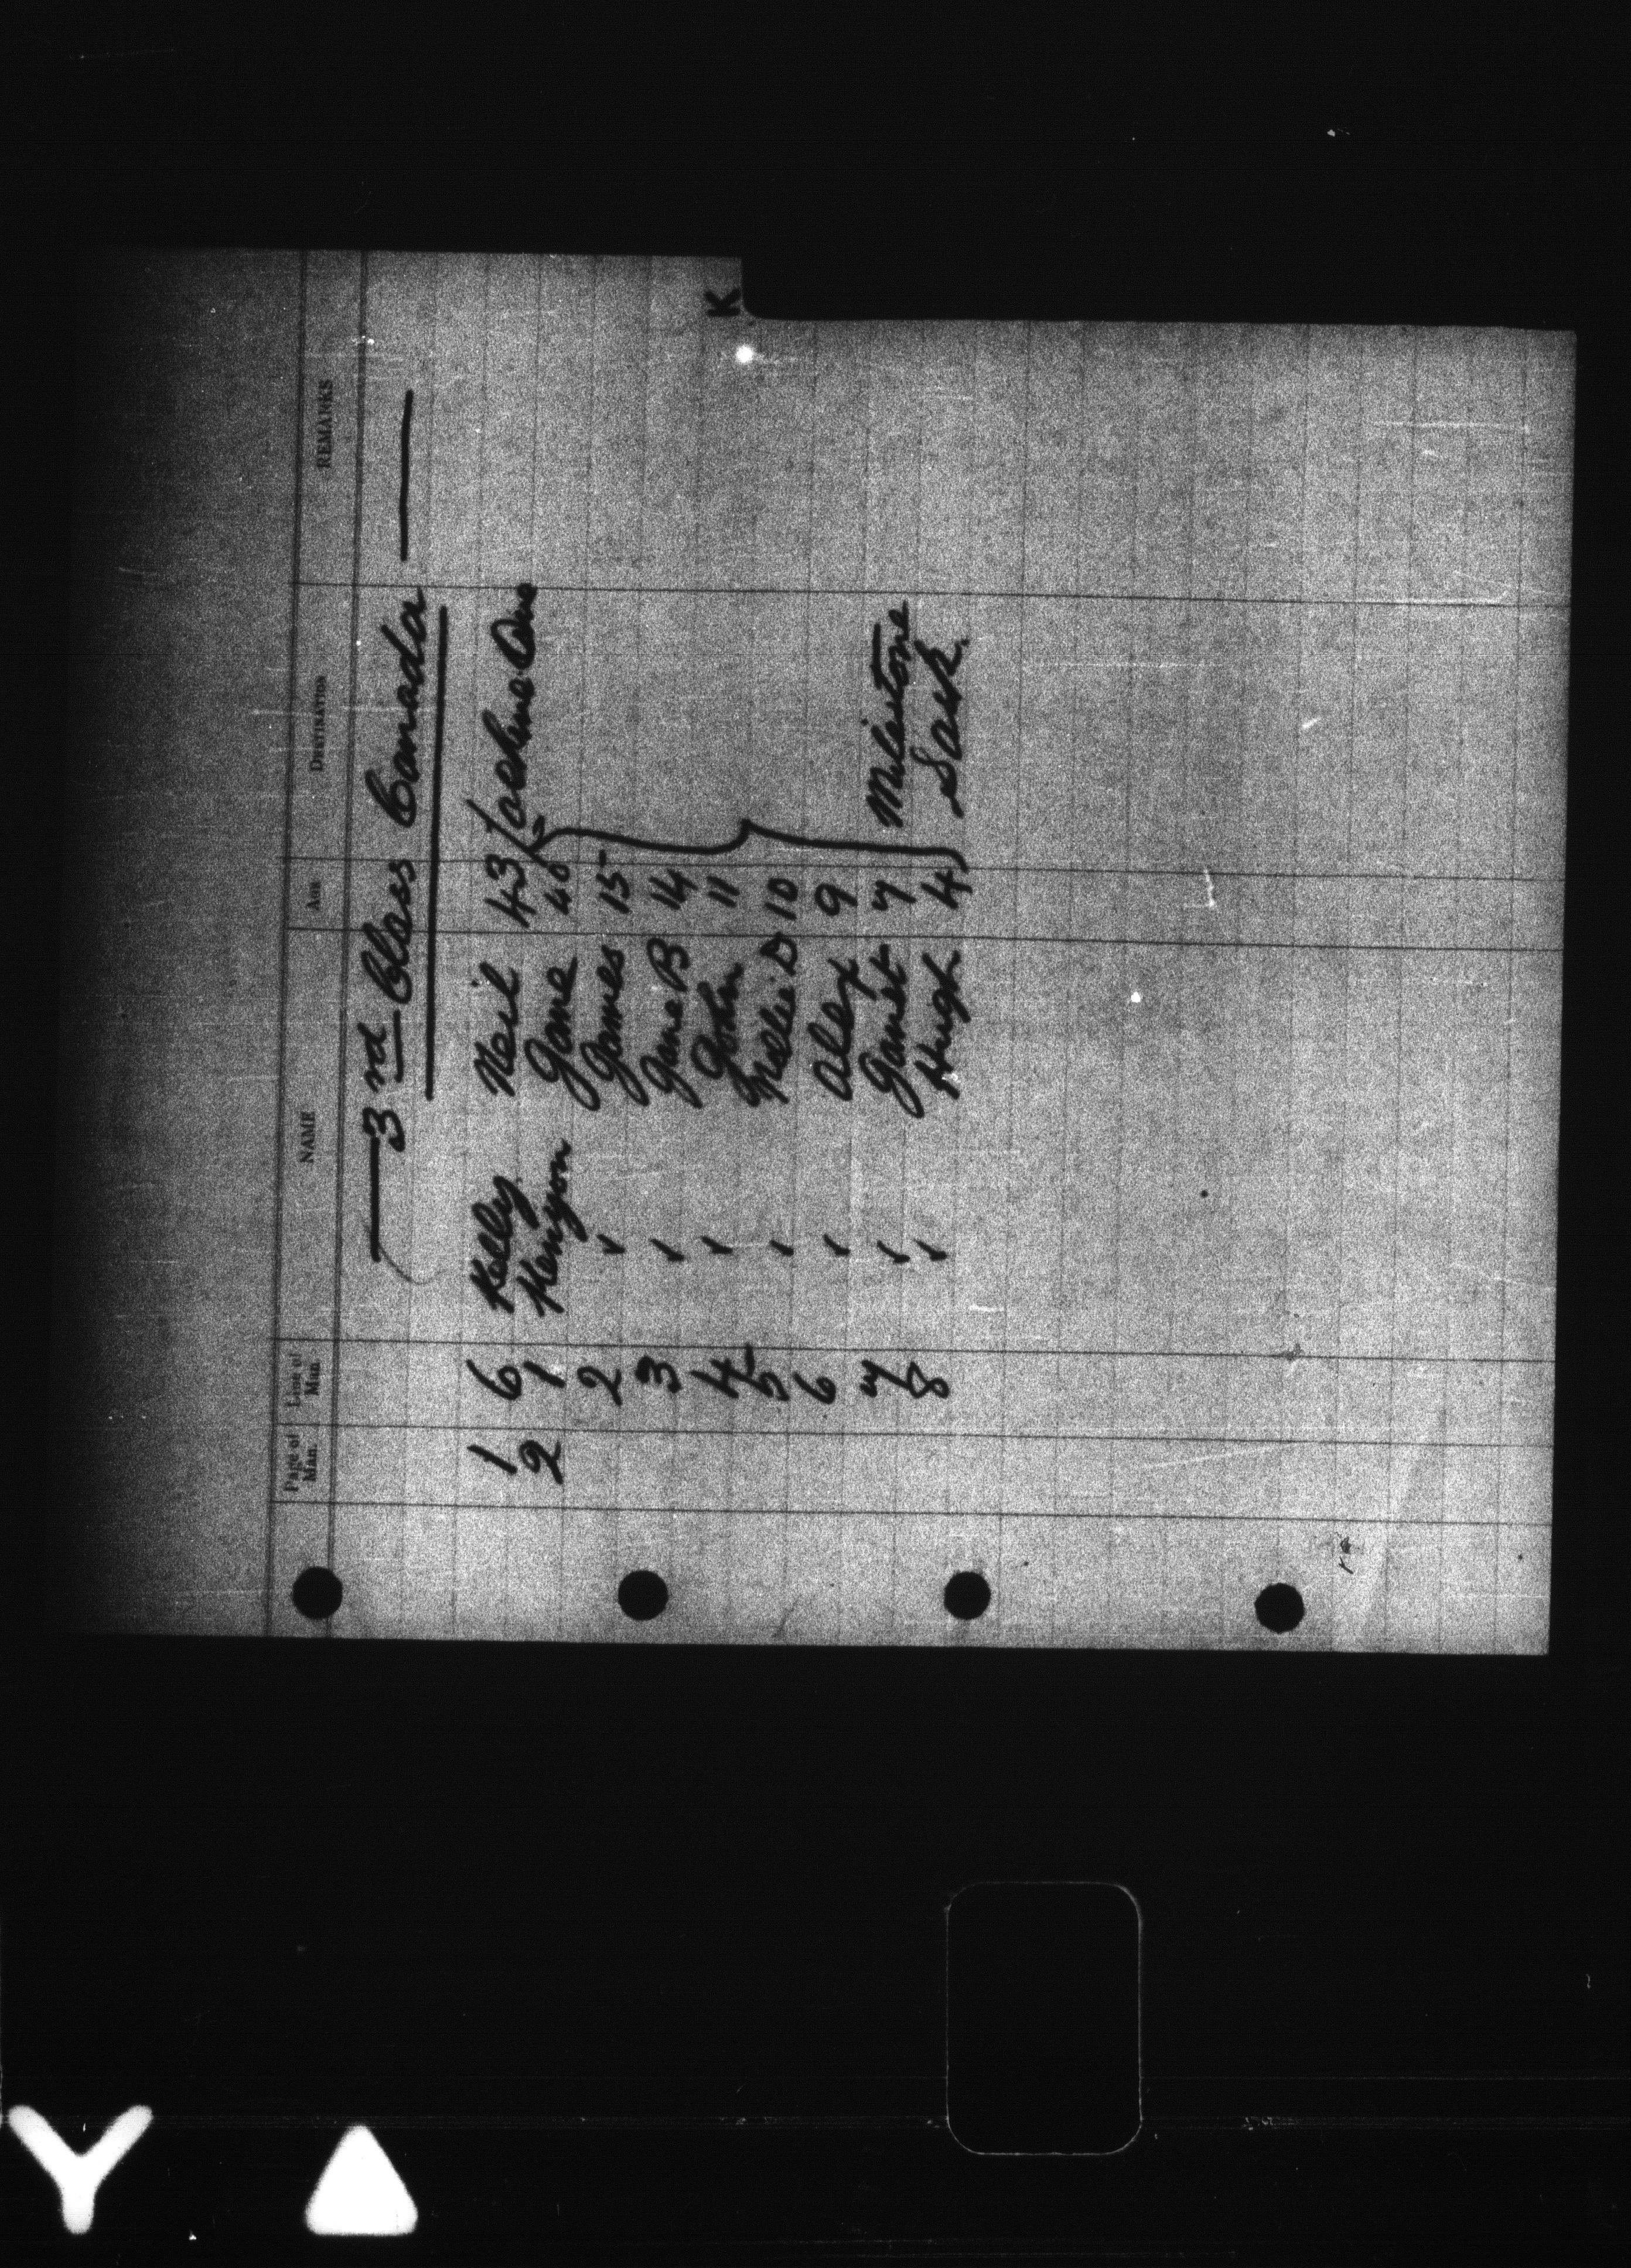 K
Page of Man. Line of Man. NAME AGE DESTINATION REMARKS
3rd Class Canada
1 6 Kelly Neil 43 Lachine Que
2 1 Kenyon Jane 40
2 ✓ James 15
3 ✓ Jane B 14
4 ✓ John 11
5 ✓ D 10
6 ✓ Alex 9
7 ✓ Janet 7 Milestone
8 ✓ Hugh 4 Sask.
Y